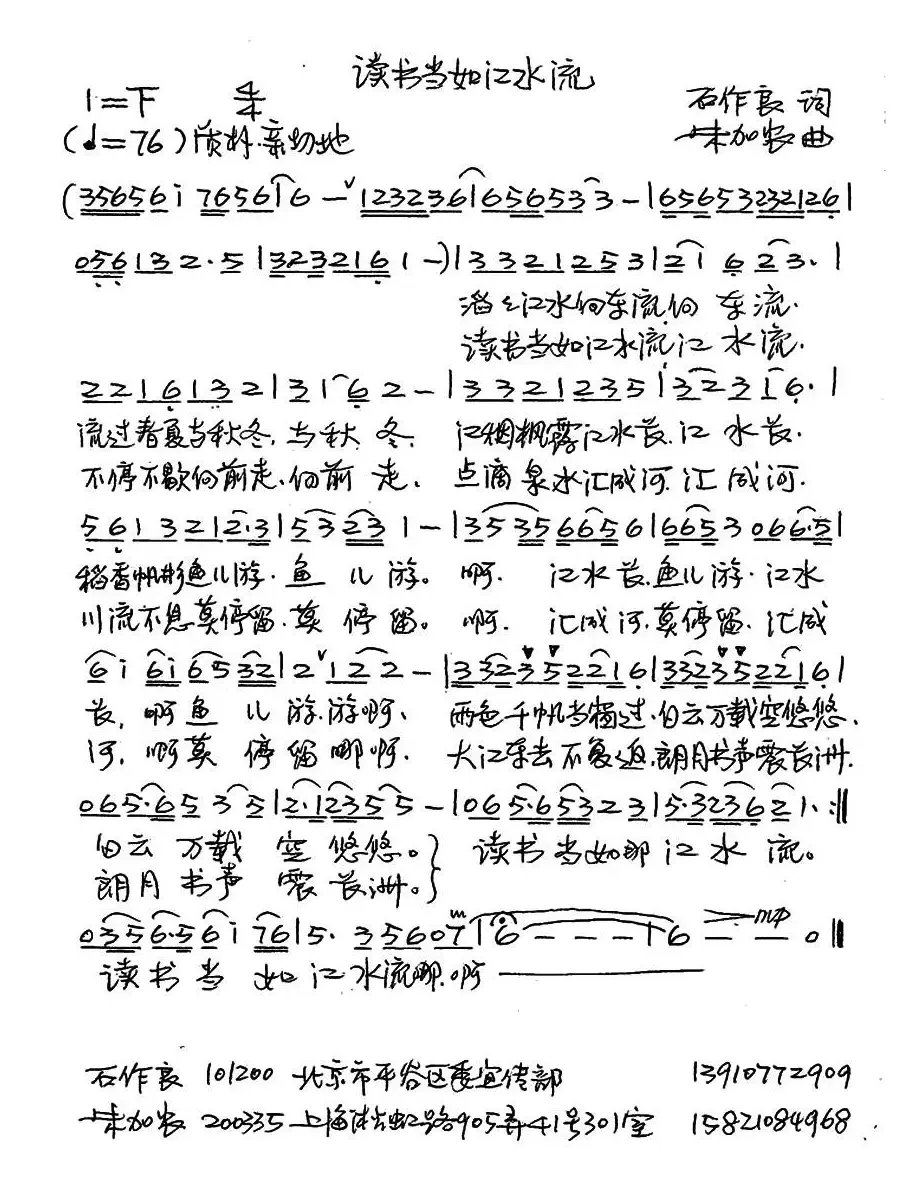 读书当如江水流
1=F 4/4 石作良 词
(♩=76)质朴.亲切地 朱加农 曲
(35656i 76561̇6 -ˇ1232361656533 -|65653232126|
0561322.5|32321 61-)|3321253|21 6 23.|
滔々江水向东流向 东流.
读书当如江水流江 水流.
2216132|316 2-|3321235|3231 6.|
流过春夏与秋冬.与秋 冬. 江稠枫露江水长.江 水长.
不停不歇向前走.向前 走. 点滴泉水汇成河.汇成河.
561 3212.3|5323 1-|353566561|66530 66.5|
稻香帆影鱼儿游.鱼 儿 游。 啊. 江水长.鱼儿游.江水
川流不息莫停留.莫 停 留。 啊. 汇成河.莫停留.汇成
6i 6i6532|2ˇ122-|332352216|332352216|
长,啊鱼 儿 游.游啊. 两色千帆当犒过.白云万载空悠悠.
河,啊莫 停留哪啊. 大江东去不复返.朗月书声震长洲.
065.6535|2.12355-|065.65323|5.323621.:‖
白云 万载 空 悠悠。} 读书 当如那 江 水 流。
朗月 书声 震 长洲。}
03556.56i 76|5. 35607|6---|6--0‖ mp
读书 当 如江水流哪.啊
石作良 101200 北京市平谷区委宣传部 13910772909
朱加农 200335 上海 虹路905弄41号301室 15821084968